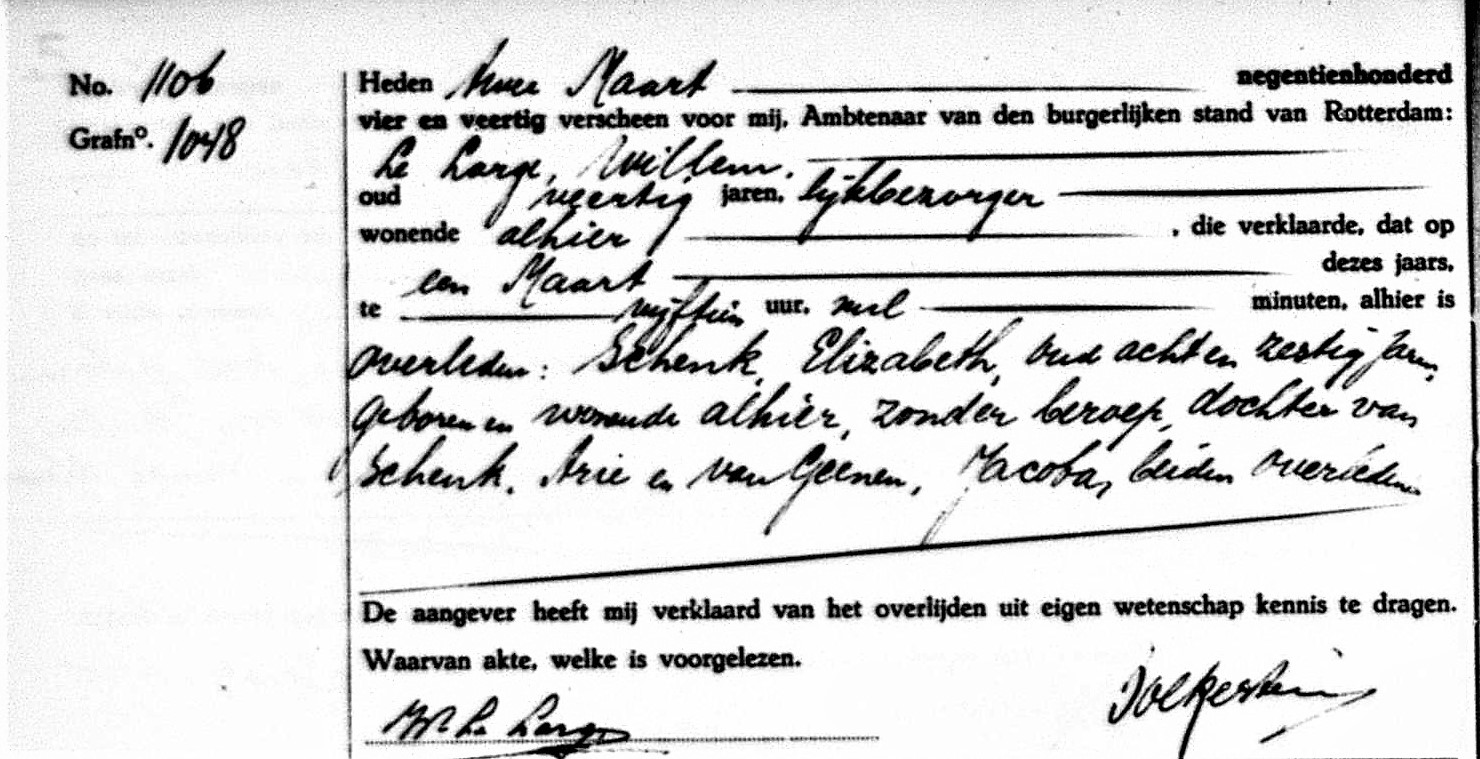 No. 1106
Grafnº. 1048
Heden twee Maart negentienhonderd
vier en veertig verscheen voor mij, Ambtenaar van den burgerlijken stand van Rotterdam:
Le Large, Willem,
oud veertig jaren, lijkbezorger
wonende alhier , die verklaarde, dat op
een Maart dezes jaars,
te vijftien uur, nul minuten, alhier is
overleden: Schenk, Elizabeth, oud acht en zestig jaren,
geboren en wonende alhier, zonder beroep, dochter van
Schenk, Arie en van Geenen, Jacoba, beiden overleden
De aangever heeft mij verklaard van het overlijden uit eigen wetenschap kennis te dragen.
Waarvan akte, welke is voorgelezen.
W. Le Large